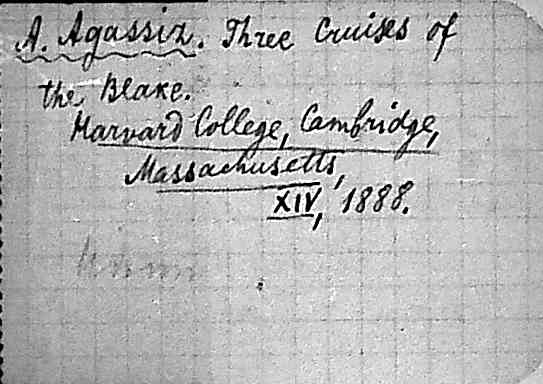 A. Agassiz. Three Cruises of
the Blake.
Harvard College, Cambridge,
Massachusetts,
XIV, 1888.